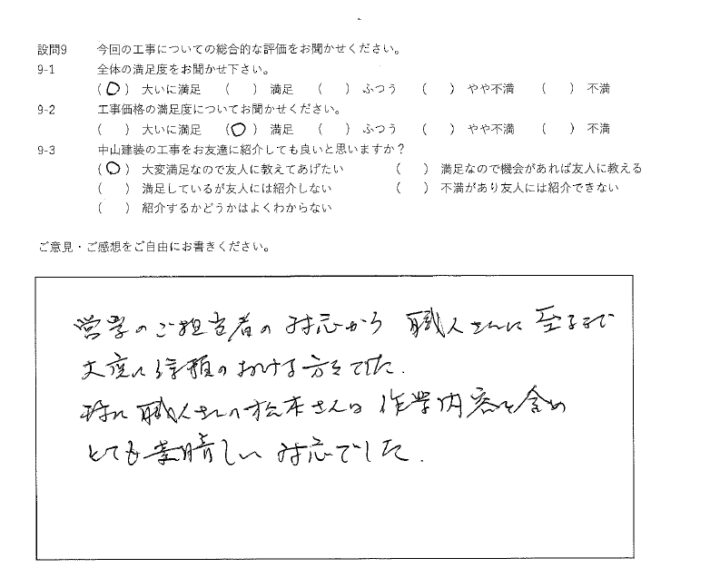 設問9 今回の工事についての総合的な評価をお聞かせください。
9-1 全体の満足度をお聞かせ下さい。
(○) 大いに満足 ( ) 満足 ( ) ふつう ( ) やや不満 ( ) 不満
9-2 工事価格の満足度についてお聞かせください。
( ) 大いに満足 (○) 満足 ( ) ふつう ( ) やや不満 ( ) 不満
9-3 中山建装の工事をお友達に紹介しても良いと思いますか？
(○) 大変満足なので友人に教えてあげたい ( ) 満足なので機会があれば友人に教える
( ) 満足しているが友人には紹介しない ( ) 不満があり友人には紹介できない
( ) 紹介するかどうかはよくわからない
ご意見・ご感想をご自由にお書きください。
営業のご担当者の対応から 職人さんに至るまで
信頼のおける方々でした.
特に職人さんの松本さんは 作業内容を含め
とても素晴しい 対応でした.